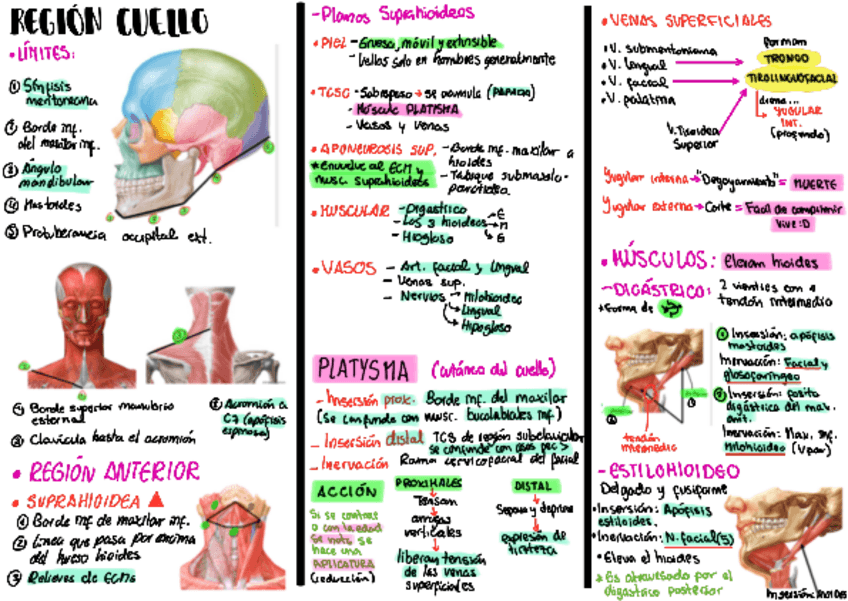 REGIÓN CUELLO
• LÍMITES:
① Sínfisis mentoneana
② Borde inf. del maxilar inf.
③ Ángulo mandibular
④ Mastoides
⑤ Protuberancia occipital ext.
① Borde superior manubrio esternal
② Clavícula hasta el acromión
③ Acromión a C7 (apófisis espinosa)
• REGIÓN ANTERIOR
• SUPRAHIOIDEA
① Borde inf. de maxilar inf.
② Línea que pasa por encima del hueso hioides
③ Relieves de ECMs
- Planos Suprahioideos
• PIEL - Gruesa, móvil y extensible
- Vellos solo en hombres generalmente
• TCSC - Sobrepeso → se acumula (PAPADA)
- Músculo PLATISMA
- Vasos y venas
• APONEUROSIS SUP. - Borde inf. maxilar a hioides
* envuelve al ECM y musc. suprahioideos
- Tabique submaxilo-parotídeo.
• MUSCULAR - Digastrico
- Los 3 hioideos
- Hiogloso
• VASOS - Art. facial y lingual
- Venas sup.
- Nervios → Milohioideo
→ Lingual
→ Hipogloso
PLATYSMA (cutáneo del cuello)
- Inserción prox. Borde inf. del maxilar
(se confunde con musc. bucolabiales inf.)
- Inserción distal TCS de región subclavicular
se confunde con
- Inervación Rama cervicofacial del facial
ACCIÓN
Si se contrae
o con la edad
se nota, se
hace una
PROXIMALES
Tensan
arrugas
verticales
liberan tensión
de las venas
superficiales
DISTAL
Separa y deprime
expresión de
tristeza
• VENAS SUPERFICIALES
• V. submentoniana
• V. lengual
• V. facial
• V. palatina
V. Tiroidea Superior
forman
TRONCO
TIROLINGUOFACIAL
drena...
YUGULAR INT.
(profundo)
Yugular interna → "Degoyamiento" = MUERTE
Yugular externa → Corte = Facil de comprimir
Vive :D
• MÚSCULOS: Elevan hioides
- DIGÁSTRICO: 2 vientres con 1 tendón intermedio
* Forma de
① Inserción: apófisis mastoides
Inervación: Facial y glosofaríngeo
② Inserción: fosita digástrica del max. inf.
Inervación: Max. inf.
milohioideo
tendón intermedio
- ESTILOHIOIDEO
Delgado y fusiforme
• Inserción: Apófisis estiloides.
• Inervación: N. facial
• Eleva el hioides
* Es atravesado por el digástrico posterior
Inserción: HIOIDES